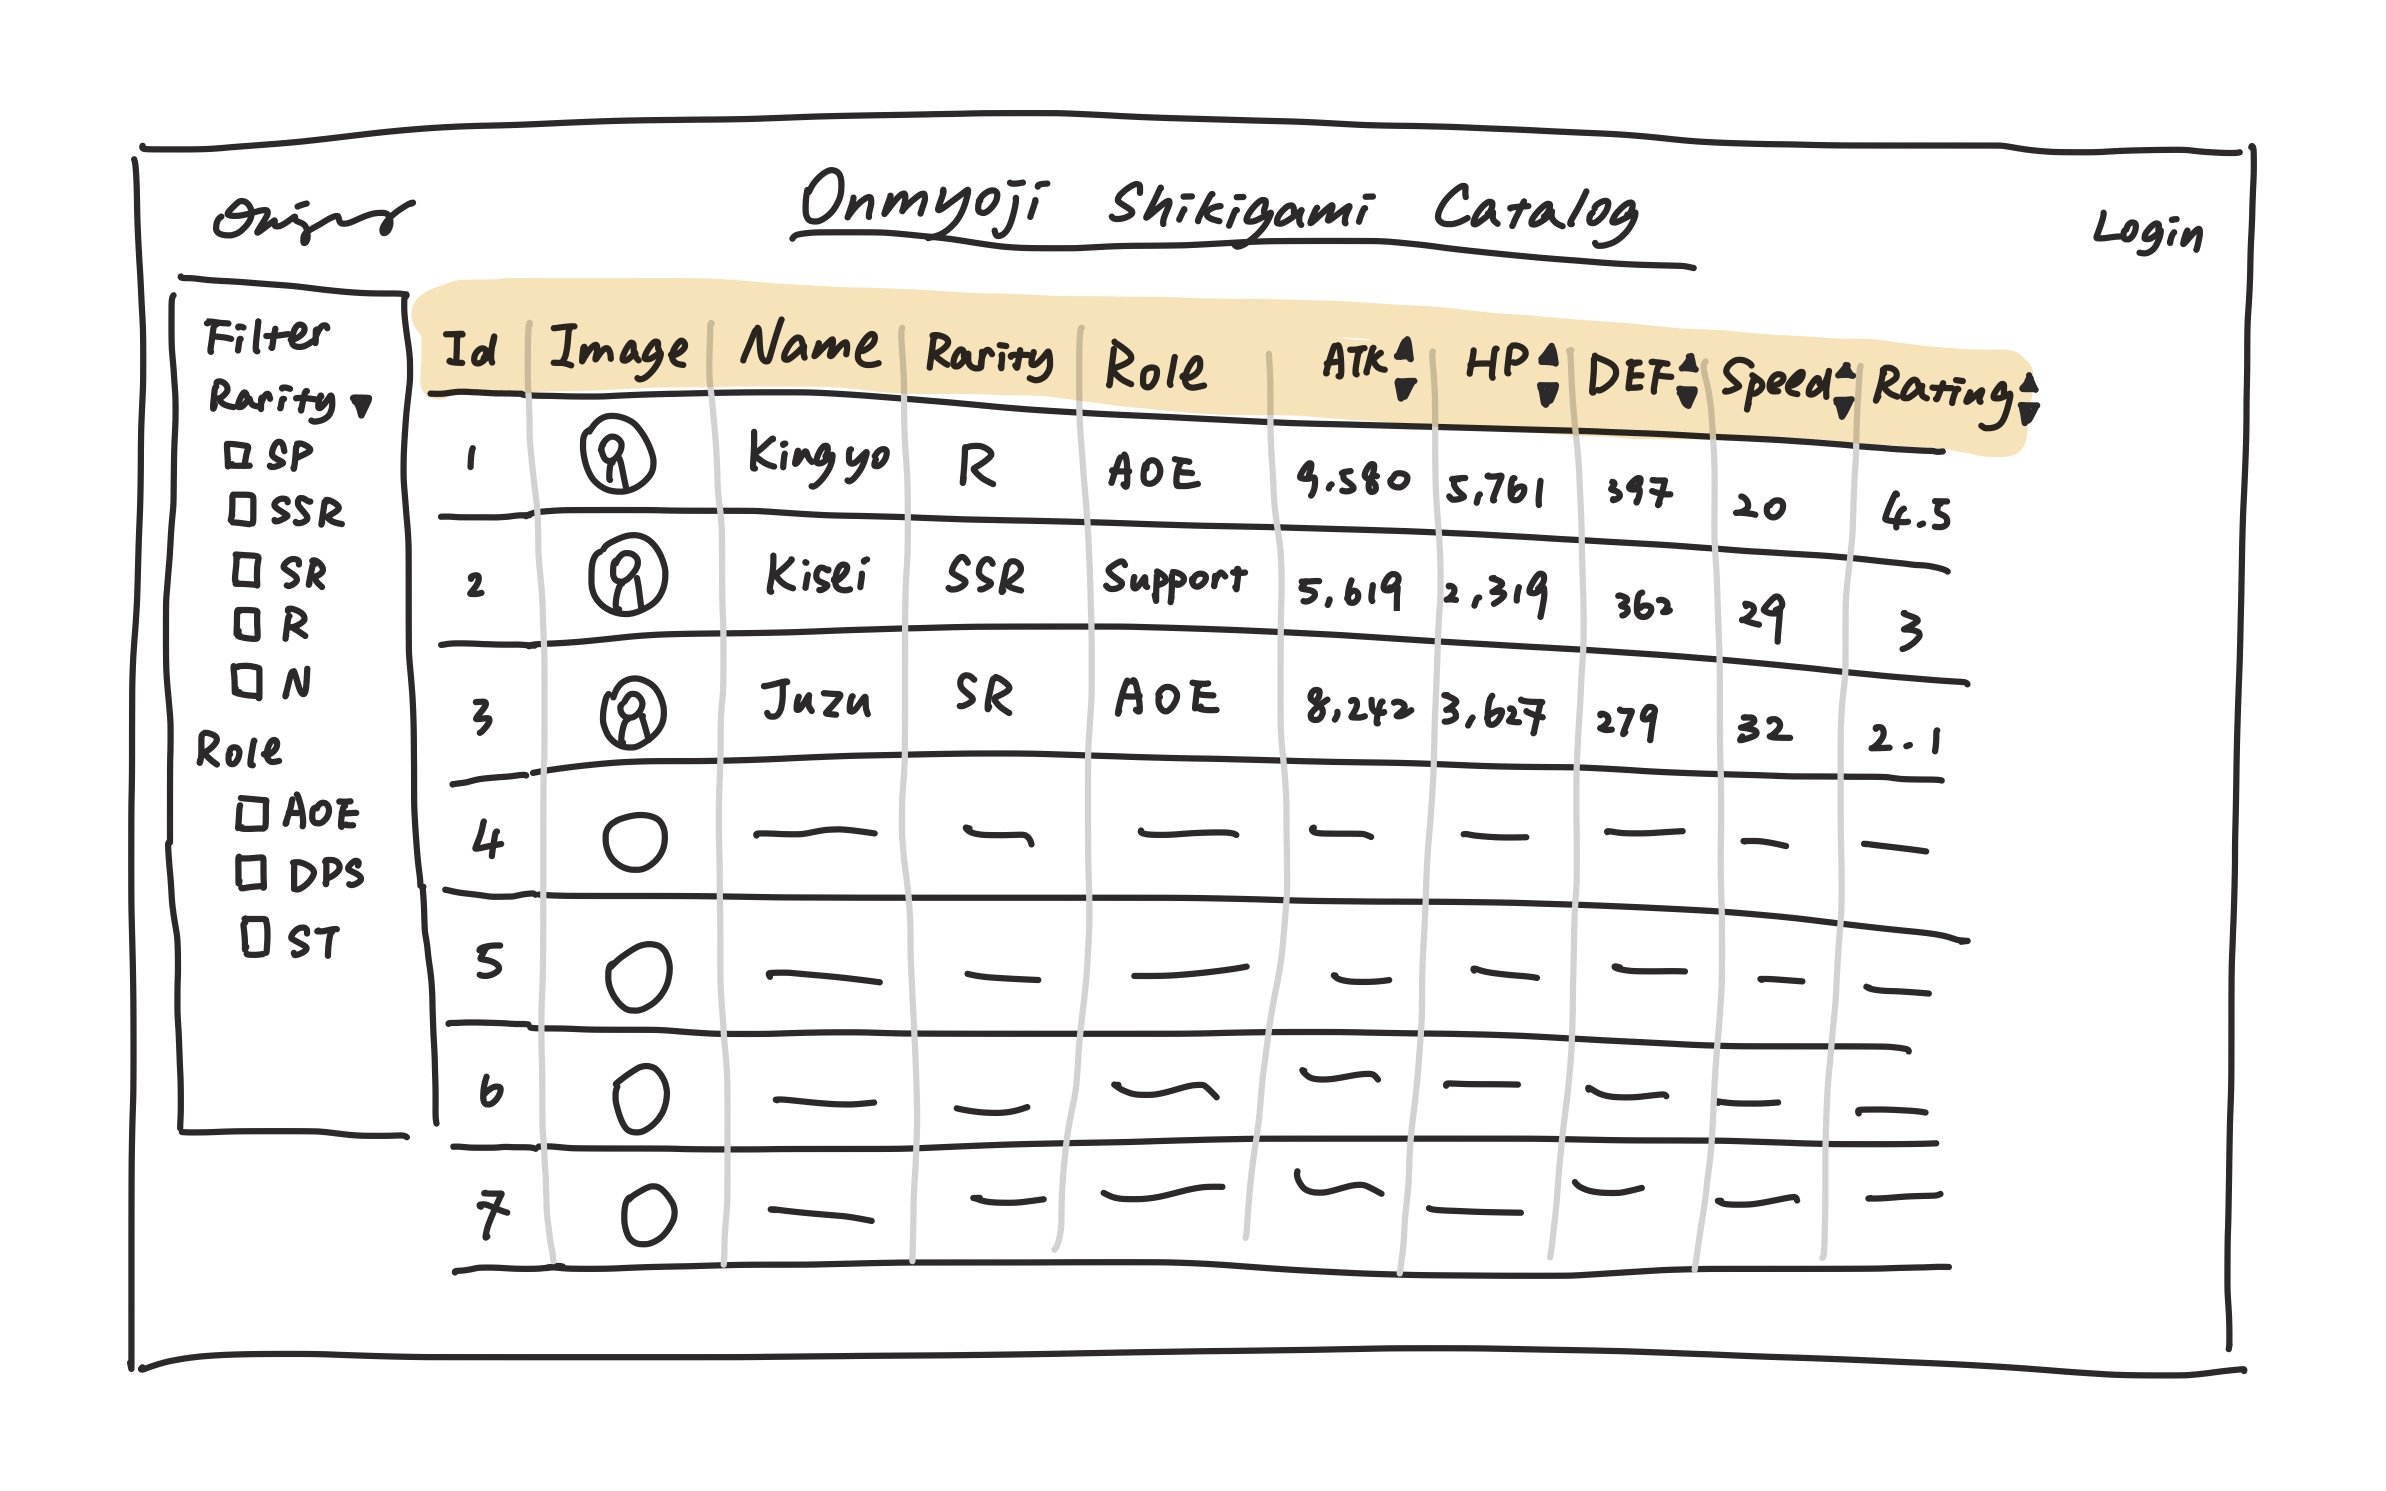 Onmyoji Shikigami Catalog
Login
Filter
Rarity
SP
SSR
SR
R
N
Role
AOE
DPS
ST
Id Image Name Rarity Role ATK HP DEF Speed Rating
1 Kingyo R AOE 9,580 5,761 397 20 4.5
2 Kisei SSR Support 5,619 2,319 362 29 3
3 Juzu SR AOE 8,242 3,627 279 32 2.1
4
5
6
7